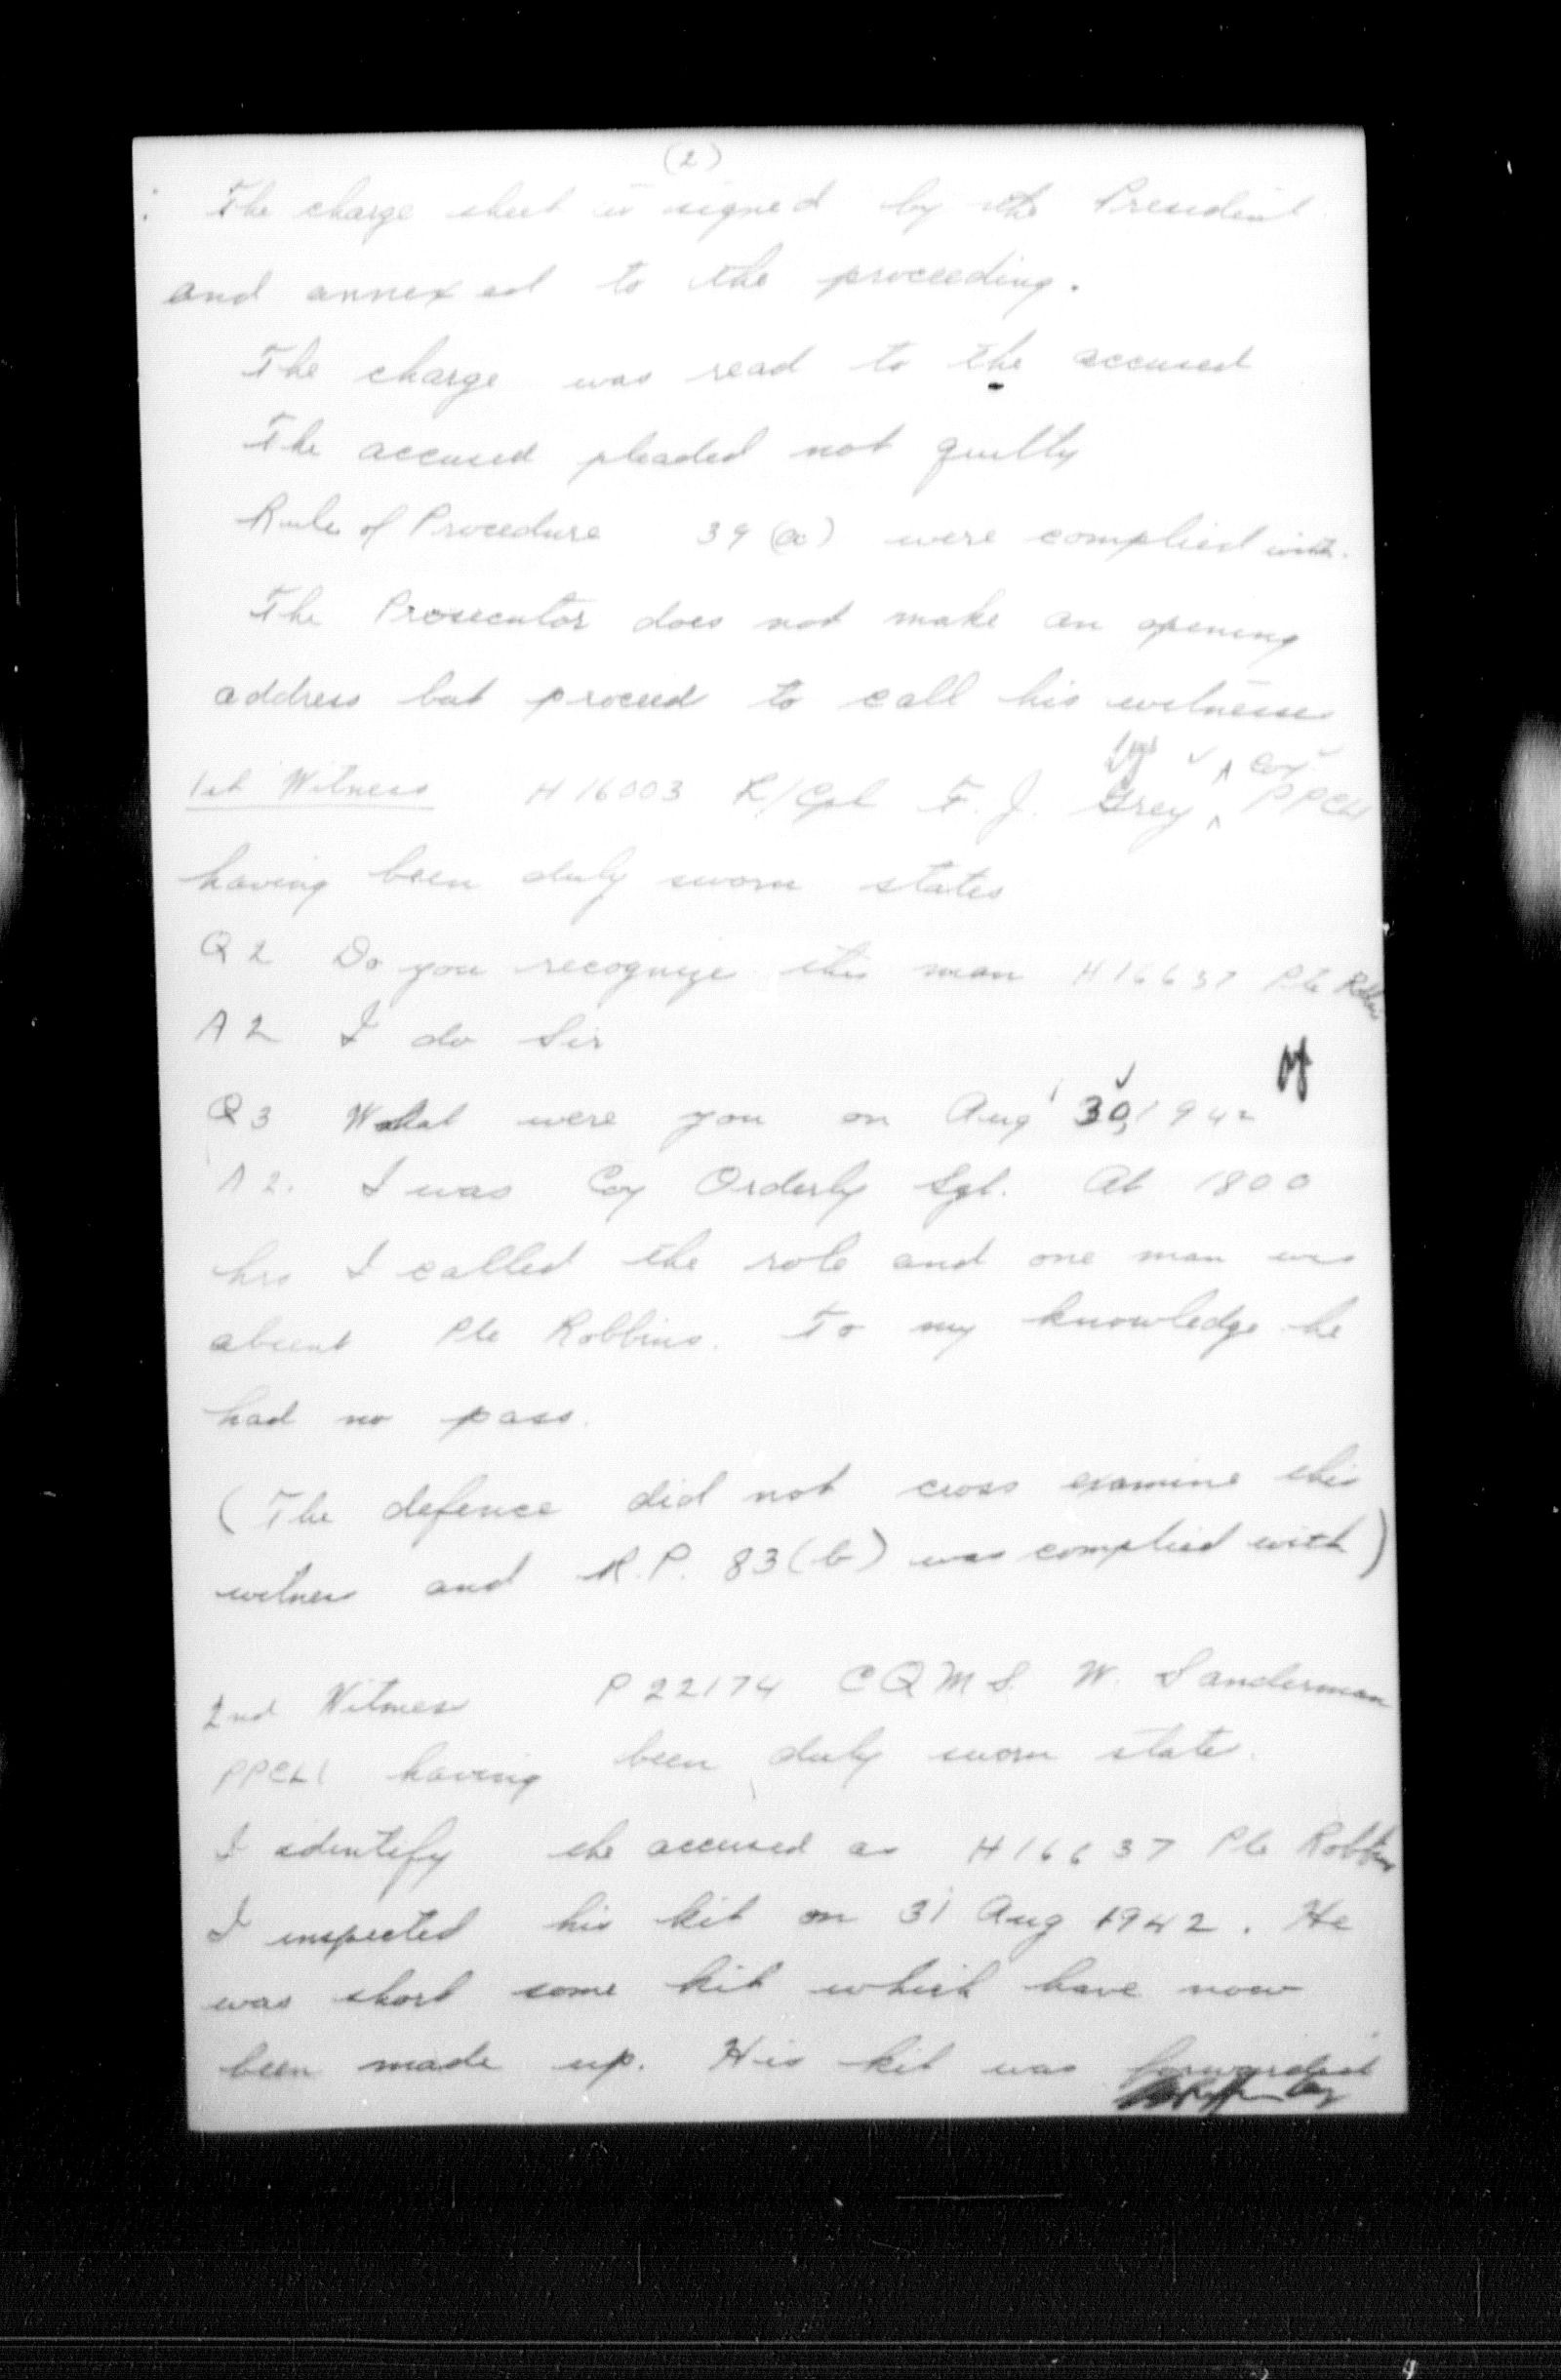 (2)
The charge sheet is signed by the President
and annexed to the proceeding.
The charge was read to the accused
The accused pleaded not guilty
Rule of Procedure 39 (a) were complied with.
The Prosecutor does not make an opening
address but proceed to call his witnesses
Coy.
1st Witness H16003 L/Cpl F. J. Grey PPCLI
having been duly sworn states
Q2 Do you recognize this man H16637 Pte Robbins
A2 I do Sir
Q3 What were you on Aug 30, 1942
A2. I was Coy Orderly Sgt. At 1800
hrs I called the role and one man was
absent Pte Robbins. To my knowledge he
had no pass.
(The defence did not cross examine this
witness and R.P. 83(b) was complied with)
2nd Witness P22174 CQMS. W. Sanderman
PPCLI having been duly sworn state.
I identify the accused as H16637 Pte Robbins
I inspected his kit on 31 Aug 1942. He
was short some kit which have now
been made up. His kit was forwarded